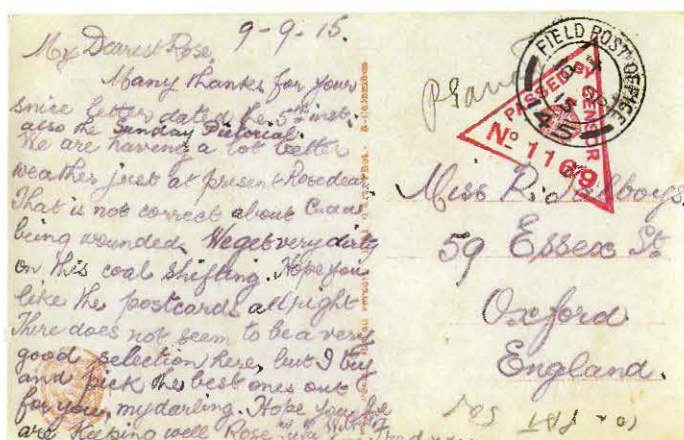 9-9-15.
My Dearest Rose,
Many thanks for your
nice letter dated the 5th inst.
also the Sunday Pictorial.
We are having a lot better
weather just at present Rose dear.
That is not correct about
being wounded. We get very dirty
on this coal shifting. Hope you
like the postcards all right
There does not seem to be a very
good selection here, but I try
and pick the best ones out
for you, my darling. Hope you
are keeping well Rose
FIELD POST OFFICE
45
PASSED BY CENSOR
No 1169
Miss R.
59 Essex St.
Oxford
England.